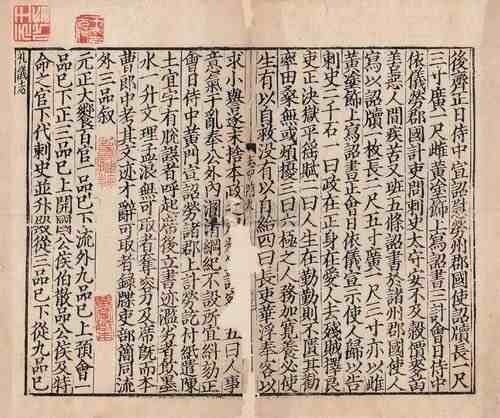 後齊正日侍中宣詔慰勞州郡國使詔牘長一尺
三寸廣一尺雌黃塗飾上寫詔書三計會日侍中
依儀勞郡國計吏問刺史太守安不及穀價麥苗
善惡人間疾苦又班五條詔書於諸州郡國使人
寫以詔牘一枚長二尺五寸廣一尺三寸亦以雌
黃塗飾上寫詔書正會日依儀宣示使人歸以告
刺史二千石一曰政在正身在愛人去殘賊擇良
吏正決獄平徭賦二曰人生在勤勤則不匱其勸
率田桑無或煩擾三曰六極之人務加寬養必使
生有以自救沒有以自給四曰長吏華浮奉客以
求小譽逐末捨本政之 五曰人事
意氣干亂奉公外內溷淆綱紀不設所宜糾劾正
會日侍中黃門宣詔勞諸郡上計勞訖付紙遣陳
土宜字有脫誤者呼起席後立書迹濫劣者飲墨
水一升文理孟浪無可取者奪容刀及席既而本
曹郎中考其文迹才辭可取者錄牒吏部簡同流
外三品敘
元正大饗百官一品已下流外九品已上預會一
品已下正三品已上開國公侯伯散品公侯及特
命之官下代刺史並升殿從三品已下從九品已